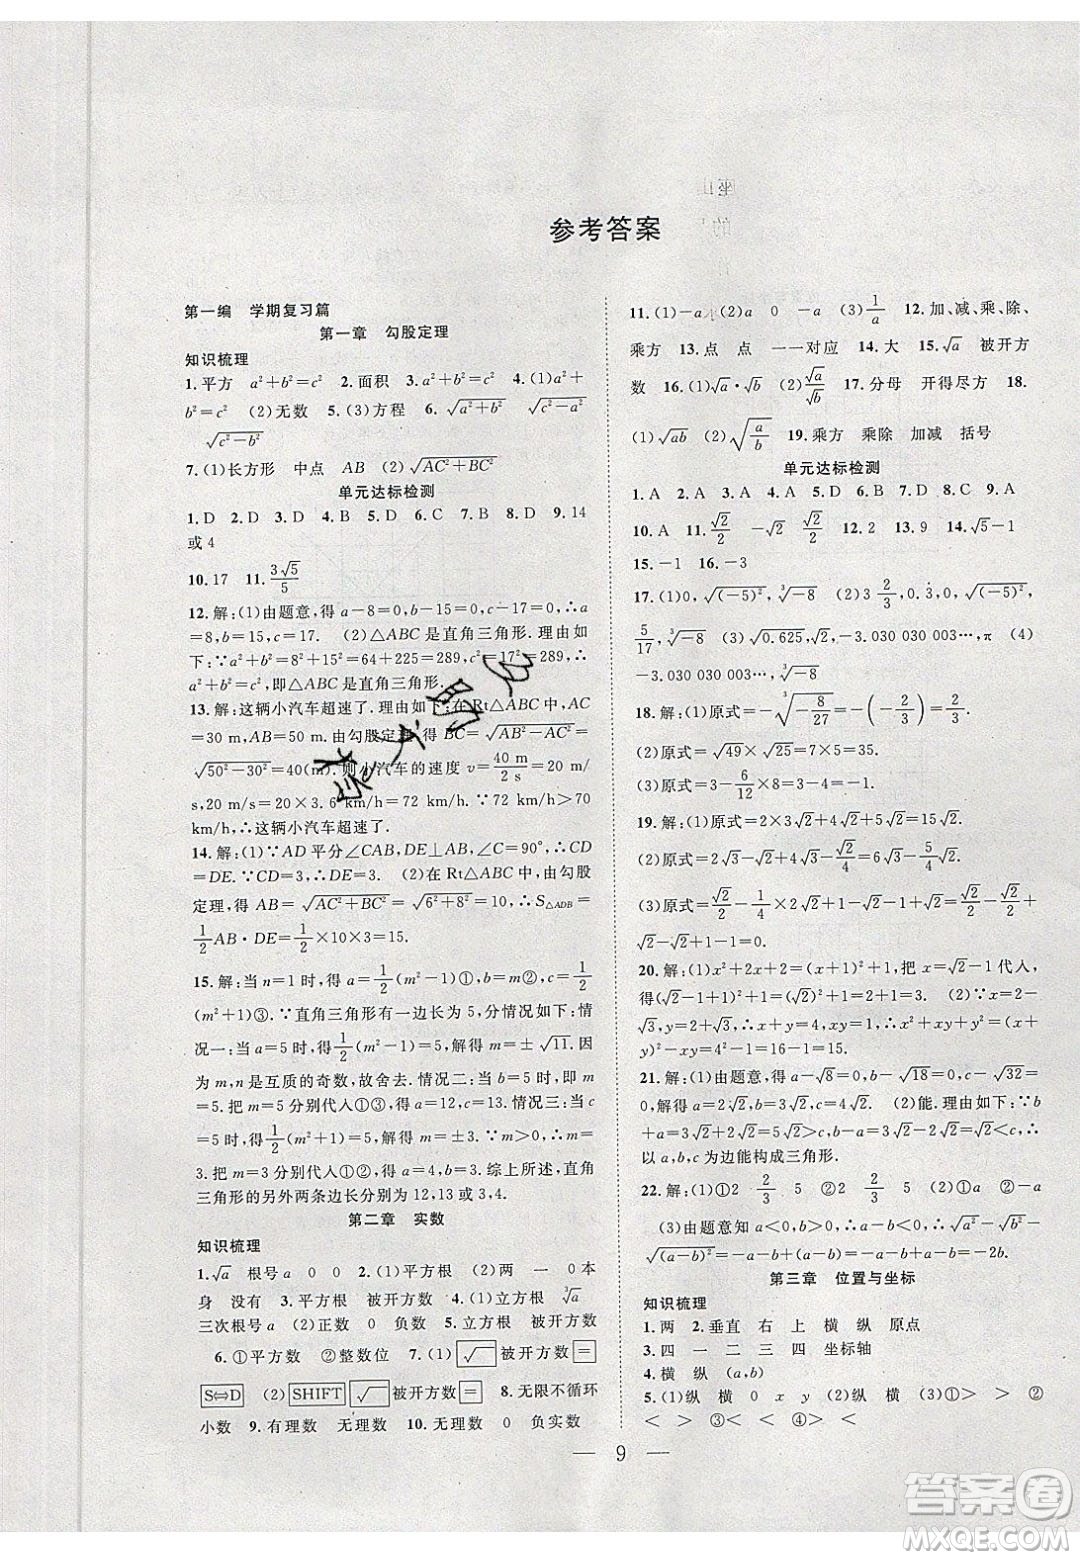 参考答案
第一编　学期复习篇
第一章　勾股定理
知识梳理
1.平方　a²+b²=c²　2.面积　3.a²+b²=c²　4.(1)a²+
b²=c²　(2)无数　5.(3)方程　6.√(a²+b²)　√(c²-a²)
√(c²-b²)
7.(1)长方形　中点　AB　(2)√(AC²+BC²)
单元达标检测
1.D　2.D　3.D　4.B　5.A　6.D　7.B　8.D　9.14
或4
10.17　11.3√5/5
12.解:(1)由题意,得a-8=0,b-15=0,c-17=0,∴a
=8,b=15,c=17.　(2)△ABC是直角三角形.理由如
下:∵a²+b²=64+225=289,c²=17²=289,∴
a²+b²=c²,即△ABC是直角三角形.
13.解:这辆小汽车超速了.理由如下:在Rt△ABC中,AC
=30 m,AB=50 m.由勾股定理,得 BC=√(AB²-AC²)=
√(50²-30²)=40(m).则小汽车的速度v=40 m/2 s=20 m/
s,20 m/s=20×3.6 km/h=72 km/h.∵72 km/h>70
km/h,∴这辆小汽车超速了.
14.解:(1)∵AD平分∠CAB,DE⊥AB,∠C=90°,∴CD
=DE.∵CD=3,∴DE=3.　(2)在Rt△ABC中,由勾股
定理,得 AB=√(AC²+BC²)=√(6²+8²)=10,∴S△ADB=
1/2AB·DE=1/2×10×3=15.
15.解:当n=1时,得a=1/2(m²-1)①,b=m②,c=1/2
(m²+1)③.∵直角三角形有一边长为5,∴分情况如下:情
况一:当a=5时,得1/2(m²-1)=5,解得m=±√11.因
为m,n是互质的奇数,故舍去.情况二:当b=5时,即m
=5.把m=5分别代人①③,得a=12,c=13.情况三:当c
=5时,得1/2(m²+1)=5,解得m=±3.∵m>0,∴m=
3.把m=3分别代人①②,得a=4,b=3.综上所述,直角
三角形的另外两条边长分别为12,13或3,4.
第二章　实数
知识梳理
1.√a　根号a　0　0　2.(1)平方根　(2)两　一　0本
身　没有　3.平方根　被开方数　4.(1)立方根　³√a
三次根号a　(2)正数　0　负数　5.立方根　被开方数
6.①平方数　②整数位　7.(1)√　被开方数　=
S⇔D　(2)SHIFT　√　被开方数　=　8.无限不循环
小数　9.有理数　无理数　10.无理数　0　负实数
11.(1)-a　(2)a　0　-a　(3)1/a　12.加、减、乘、除、
乘方　13.点　点　一一对应　14.大　15.√a　被开方
数　16.(1)√a·√b　(2)√a/√b　17.分母　开得尽方　18.
(1)√(ab)　(2)√(a/b)　19.乘方　乘除　加减　括号
单元达标检测
1.A　2.A　3.A　4.A　5.B　6.B　7.D　8.C　9.A
10.A　11.√2/2　-√2　√2/2　12.2　13.9　14.√5-1
15.-1　16.-3
17.(1)0,√((-5)²),³√-8　(2)3 2/3,0.3̇,√((-5)²),
5/17,³√-8　(3)√0.625,√2,-3.030 030 003…,π　(4)
-3.030 030 003…,³√-8
18.解:(1)原式=-³√(-8/27)=-(-2/3)=2/3.
(2)原式=√49×√25=7×5=35.
(3)原式=6/12×8=1/2×8=4.
19.解:(1)原式=2×3√2+4√2+5√2=15√2.
(2)原式=2√3-√3-√3/3+√2-√2/6=2/3√3+5/6√2.
(3)原式=√2/2-1/4×2√2+2√2+1-√2-1=√2/2-√2/2+
√2-√2=0.
20.解:(1)x²+2x+2=(x+1)²+1,把x=√2-1代人,
得(√2-1+1)²+1=(√2)²+1=2+1=3.　(2)∵x=2-
√3,y=2+√3,∴x+y=4,xy=4-3=1.∴x²+y²+(x+
y)²-xy=4-1+4²-1=16-1=15.
21.解:(1)由题意,得a-√8=0,b-√18=0,c-√32=
0,解得a=2√2,b=3√2,c=4√2.　(2)能.理由如下:∵b
+a=3√2+2√2=5√2>4√2=c,b-a=3√2-2√2=√2<c,∴
以a,b,c为边能构成三角形.
22.解:(1)①2　2/3　5　②2　2/3　5　(2)①a　②-a
(3)由题意知a<0,b>0,∴a-b<0.∴√a²-√b²-
√((a-b)²)=-a-b-(b-a)=-a-b-b+a=-2b.
第三章　位置与坐标
知识梳理
1.两　2.垂直　右　上　横　纵　原点
3.四　一　二　三　四　坐标轴
4.横　纵　(a,b)
5.(1)纵　横　0　x　y　(2)纵　横　(3)①>　>　②
<　>　③<　<　④>　<
9
答案圈
MXQE.COM